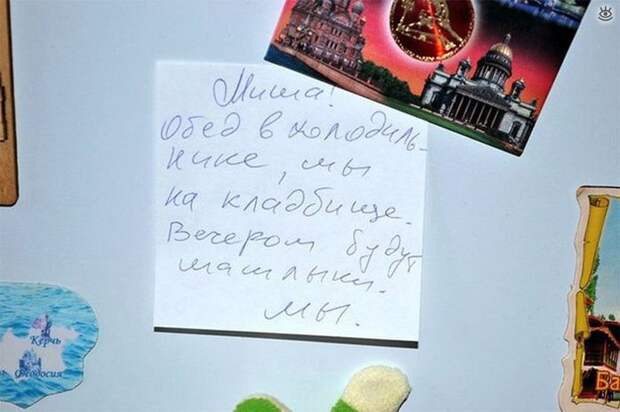 Миша!
Обед в холодиль-
нике, мы
на кладбище.
Вечером будут
шашлыки.
мы.
Керчь
Феодосия
Ба